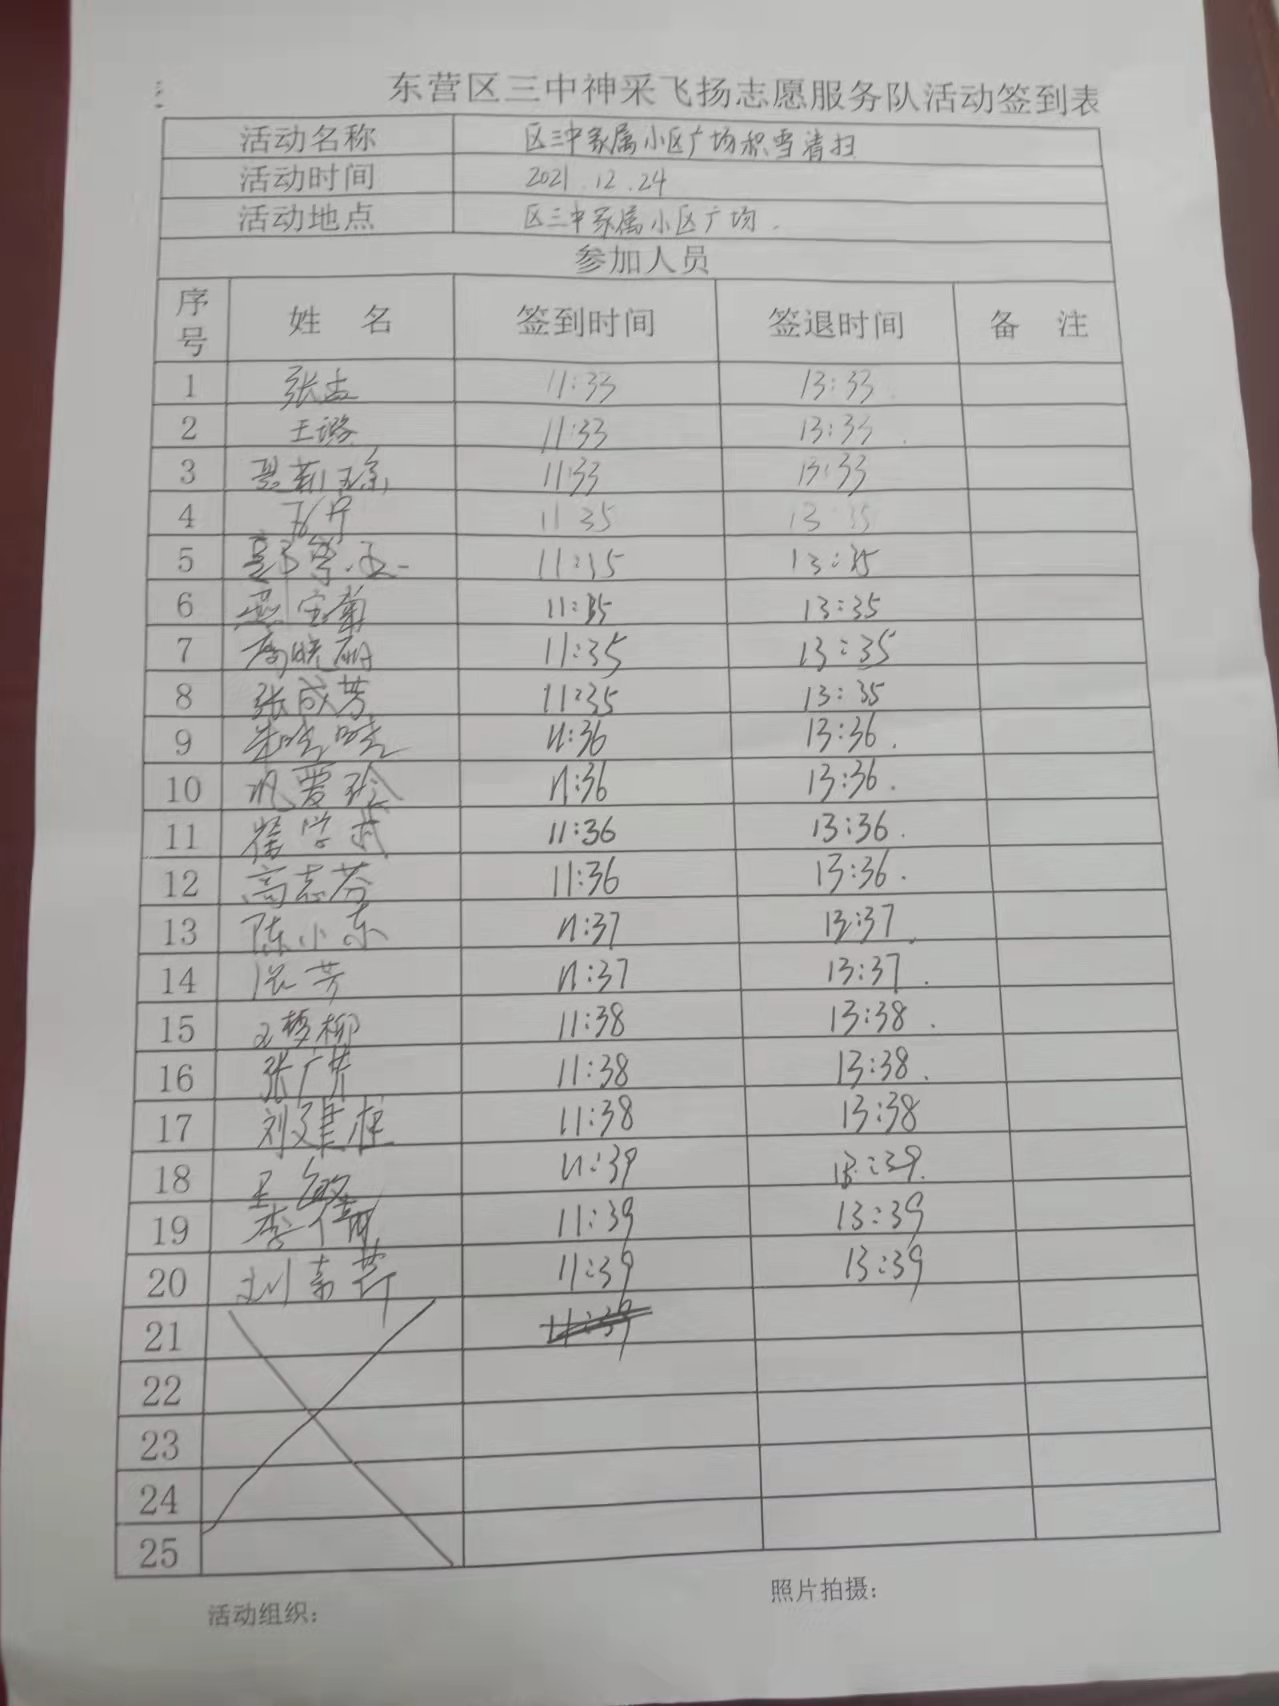 东营区三中神采飞扬志愿服务队活动签到表
活动名称 区三中家属小区广场积雪清扫
活动时间 2021.12.24
活动地点 区三中家属小区广场.
参加人员
序号 姓 名 签到时间 签退时间 备 注
1 张 11:33 13:33
2 王璐 11:33 13:33
3 11:33 13:33
4 11:35 13:35
5 11:35 13:35
6 燕宝菊 11:35 13:35
7 高晓丽 11:35 13:35
8 张成芳 11:35 13:35
9 朱晓晓 11:36 13:36.
10 巩爱玲 11:36 13:36.
11 徐学武 11:36 13:36.
12 高志芬 11:36 13:36.
13 陈小东 11:37 13:37.
14 张芳 11:37 13:37.
15 王梦柳 11:38 13:38.
16 张广芹 11:38 13:38.
17 刘建桂 11:38 13:38
18 王敏 11:39 13:39.
19 李倩 11:39 13:39
20 刘 11:39 13:39
21 11:39
22
23
24
25
活动组织： 照片拍摄：